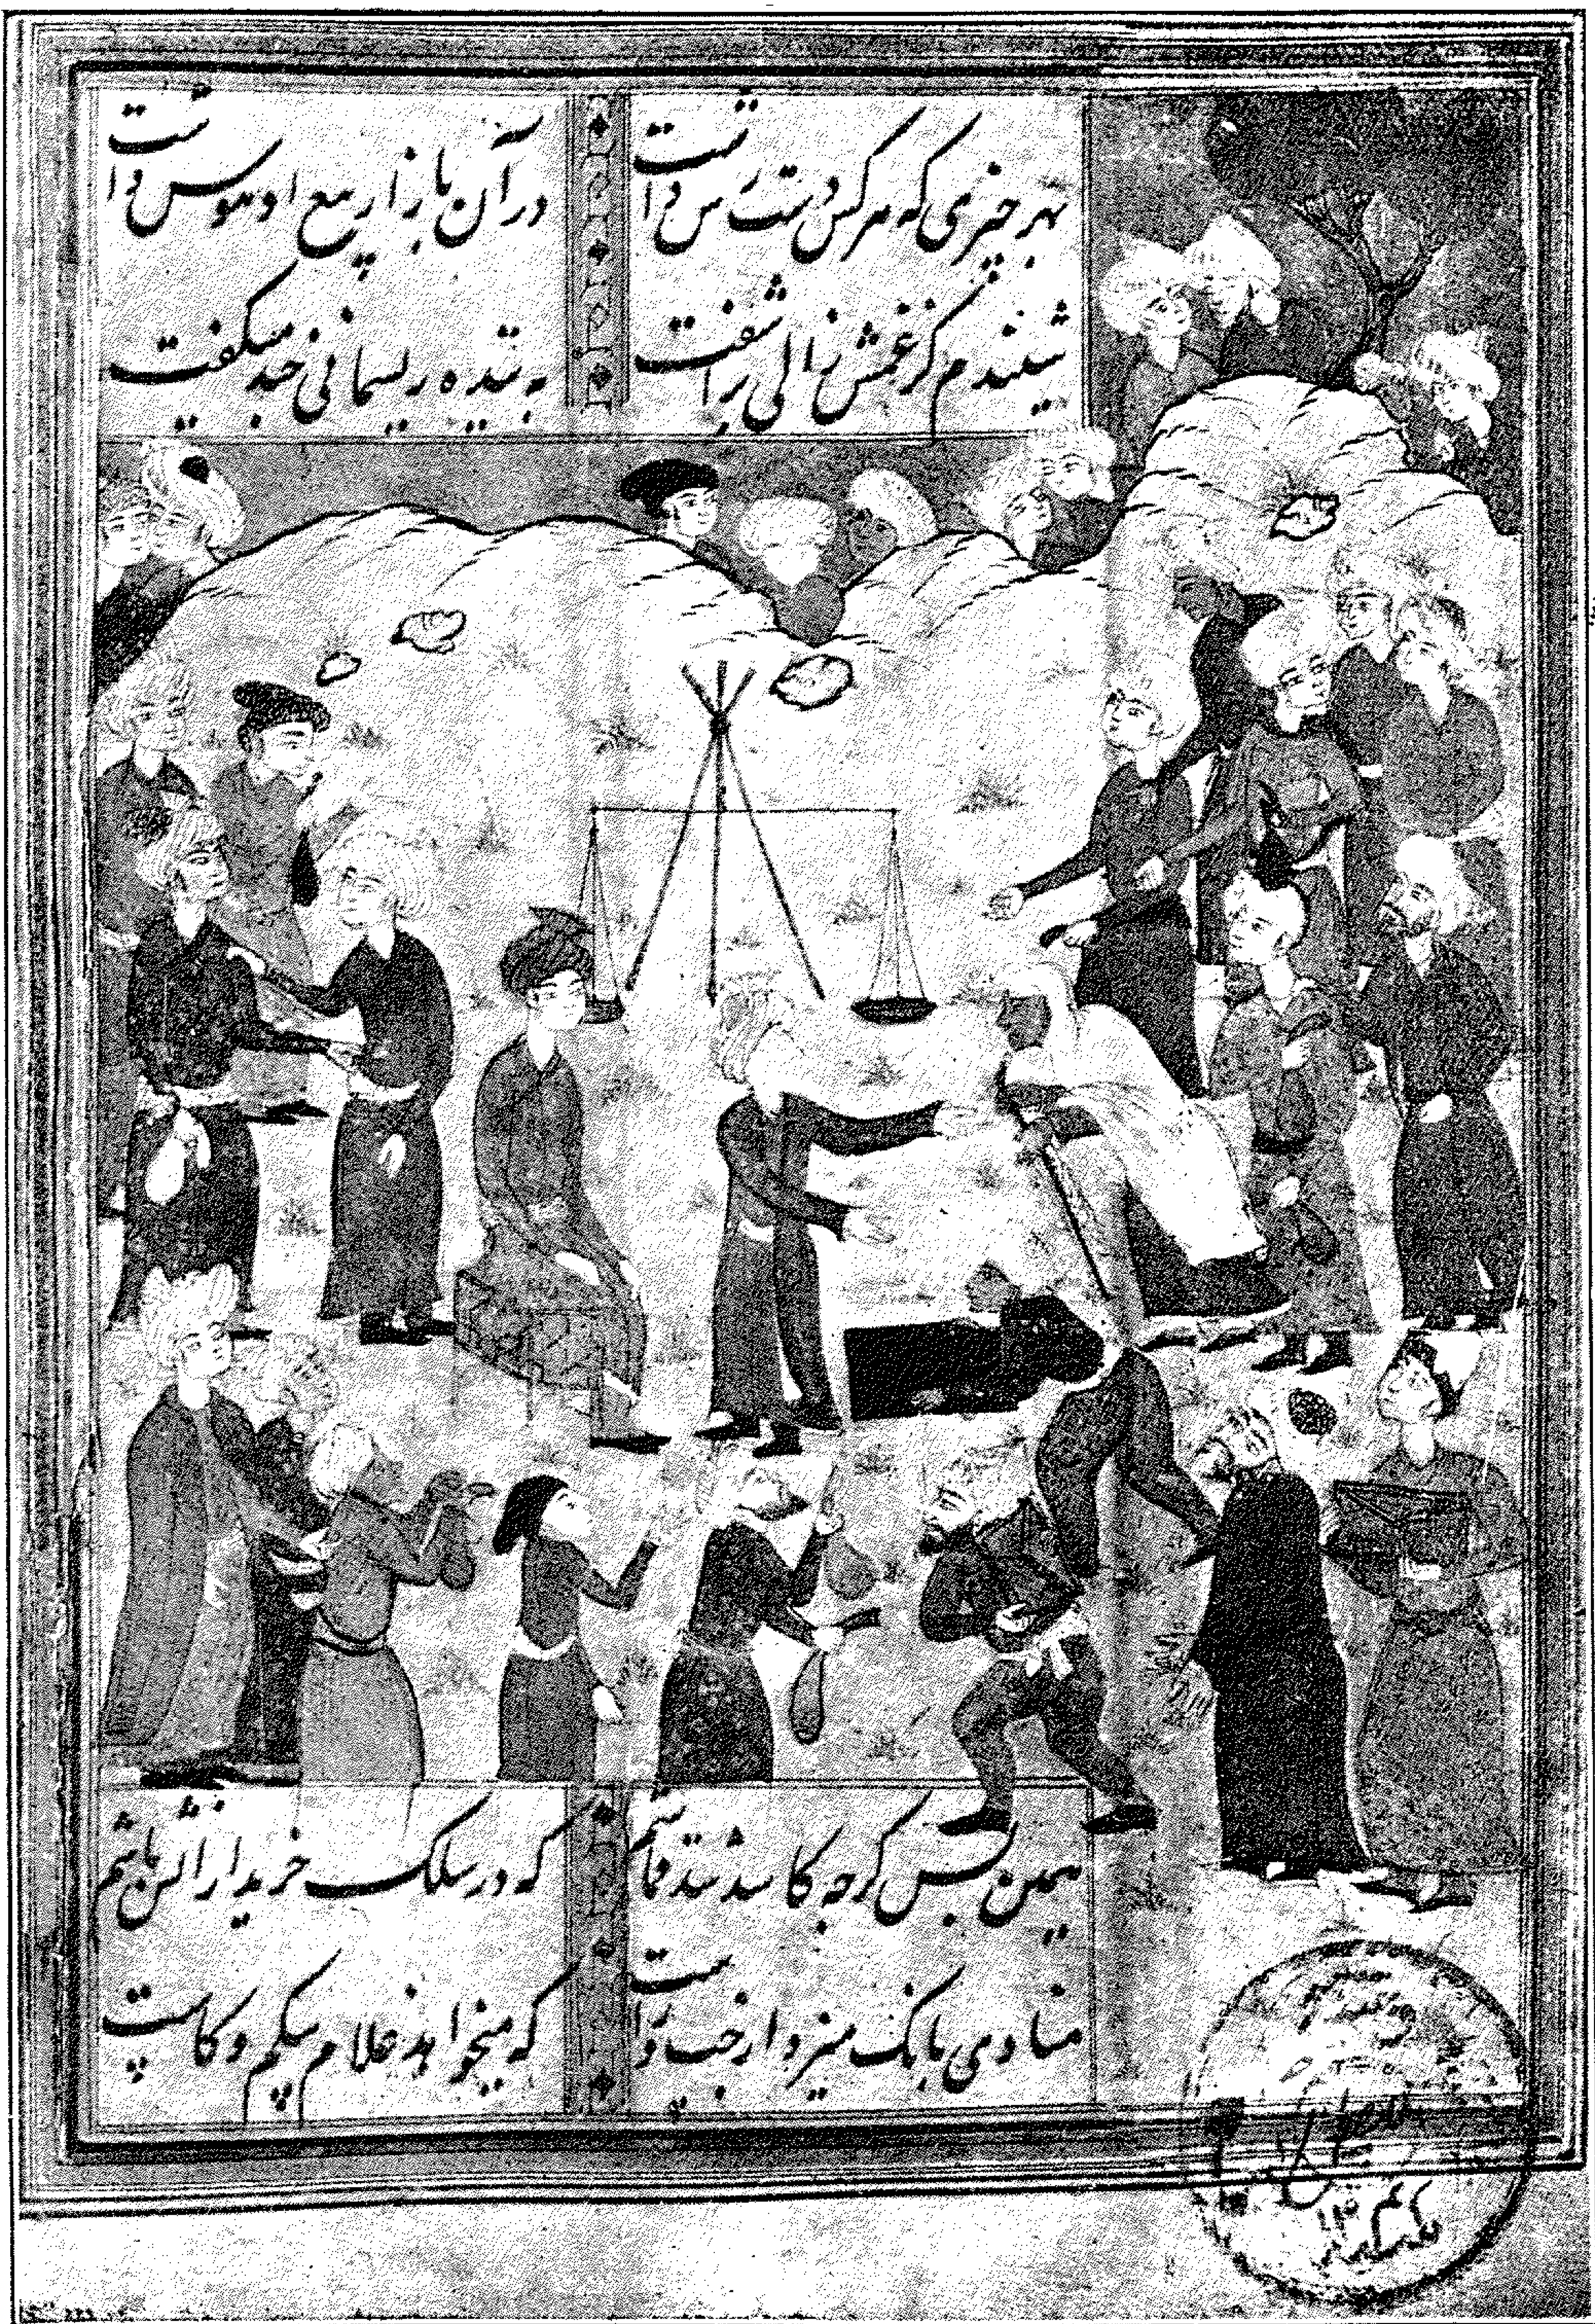 بهر چیزی که هر کس دسترس داشت
در آن بازار بیع او هوس داشت
شنیدم کز غمش زالی برآشفت
به تنیده ریسمانی چند میکفت
همین بس گرچه کاسد شد قماشم
که در سلک خریدارانش باشم
منادی بانک میزد از چپ و راست
که میخواهد غلام بیکم و کاست